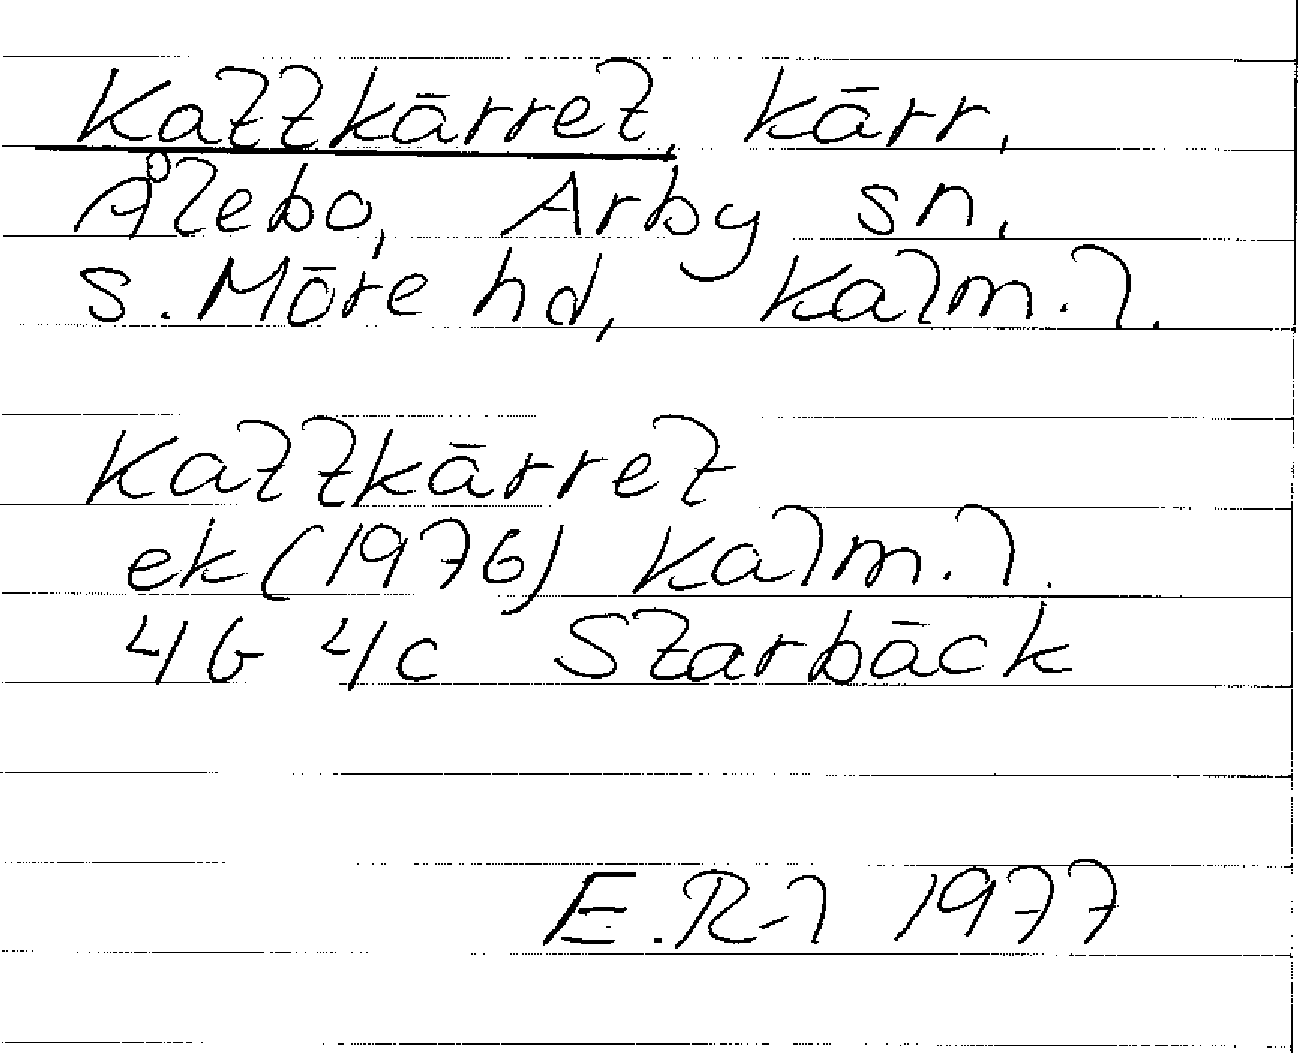 Kattkärret, kärr,
Ålebo, Arby sn,
S. Möre hd, Kalm. l.
Kattkärret
ek (1976) Kalm. l.
4G 4c Starbäck
E.R-l 1977